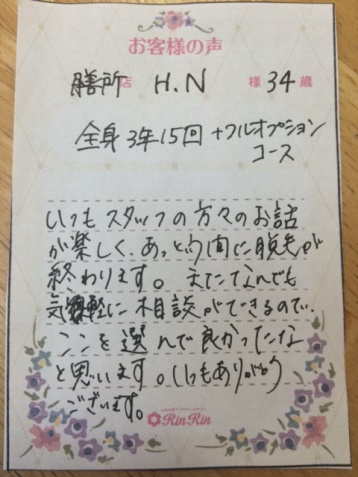 お客様の声
膳所店 H.N 様 34歳
全身3年15回 +フルオプション
コース
いつもスタッフの方々のお話
が楽しく、あっとう間に脱毛が
終わります。またなんでも
気軽に相談ができるので、
ここを選んで良かったな
と思います。いつもありがとう
ございます。
RinRin